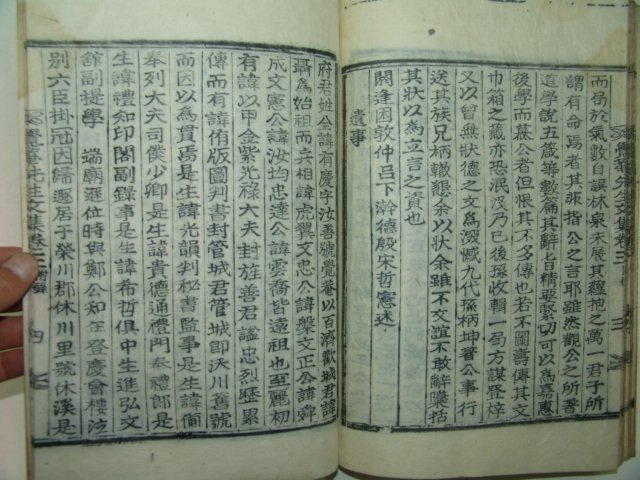 而局於氣數自誤林泉未展其蘊抱之萬一君子所
謂有命焉者其張指公之言耶雖然觀公之所著
道學說五箴等數篇其辭旨精要緊切可以爲嘉惠
後學而蔽公者固其不多傳也若不圖壽傳其文
巾箱之藏亦恐泯沒乃已後孫收輯一局方謀登梓
又以曾無狀德之文爲深慽九代孫柄坤著公事行
送其族大柄轍懇余以狀余雖不文誼不敢辭檃括
其狀以爲立言之資也
閼逢困敦仲呂下澣德殷宋哲憲述
遺事
府君姓公諱有慶字汝善號覺菴以百濟歡城君諱
聶爲始祖而丞相諱虎翼文忠公諱槃文正公諱舜
成文憲公諱汝均忠達公諱雲喬皆遠祖也至麗初
有諱以甲金紫光祿大夫封旌善君謚忠烈歷累
傳而有諱侑版圖判書封管城君管城卽沃川舊號
而因以爲貫焉是生諱光韻判秘書監事是生諱俑
奉列大夫司僕少卿是生諱貴德通禮門奉禮郎是
生諱禮知印閣副錄事是生諱希哲俱中生進弘文
館副提學 端廟遜位時與鄭公知年登慶會樓泣
別六臣掛冠因歸遯居于榮川郡休川里號休溪是
覺菴先生文集卷二 附錄 四